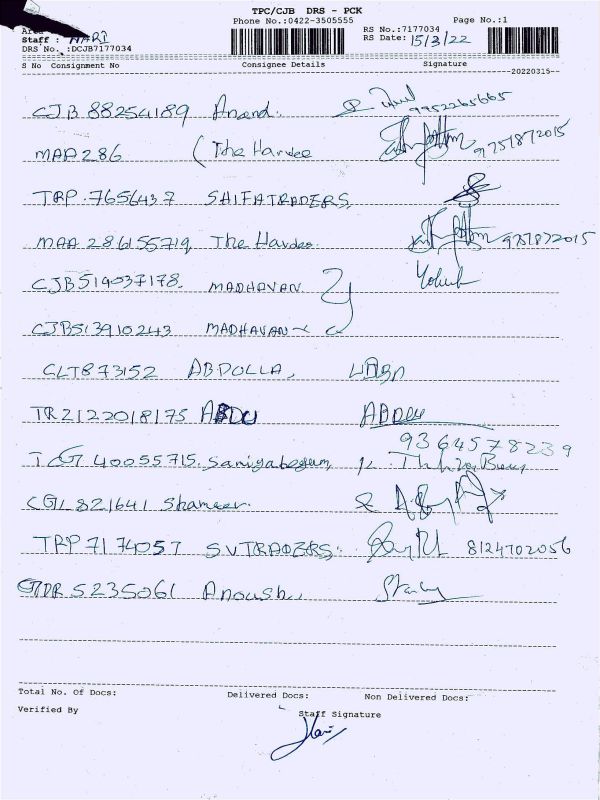 TPC/CJB DRS - PCK
Phone No.:0422-3505555 Page No.:1
Staff : HARI RS No.:7177034
DRS No.:DCJB7177034 RS Date: 15/3/22
S No Consignment No Consignee Details Signature
20220315
CJB 88254189 Anand. 9952265665
MAA286 (The Hardee 9751872015
TRP.7656437 SHIFATRADERS,
MAA 286155719, The Hardee. 9751872015
CJB519037178. MADHAVAN
CJB513910243 MADHAVAN
CLT873152 ABDOLLA,
TRZ122018175 ABDU
9364578239
TGT 40055715. Saniyabegum,
CGL821641 Shameer.
TRP7174057 SVTRADERS. 8124702056
5235061 Anoush.
Total No. Of Docs: Delivered Docs: Non Delivered Docs:
Verified By Staff Signature
Hari